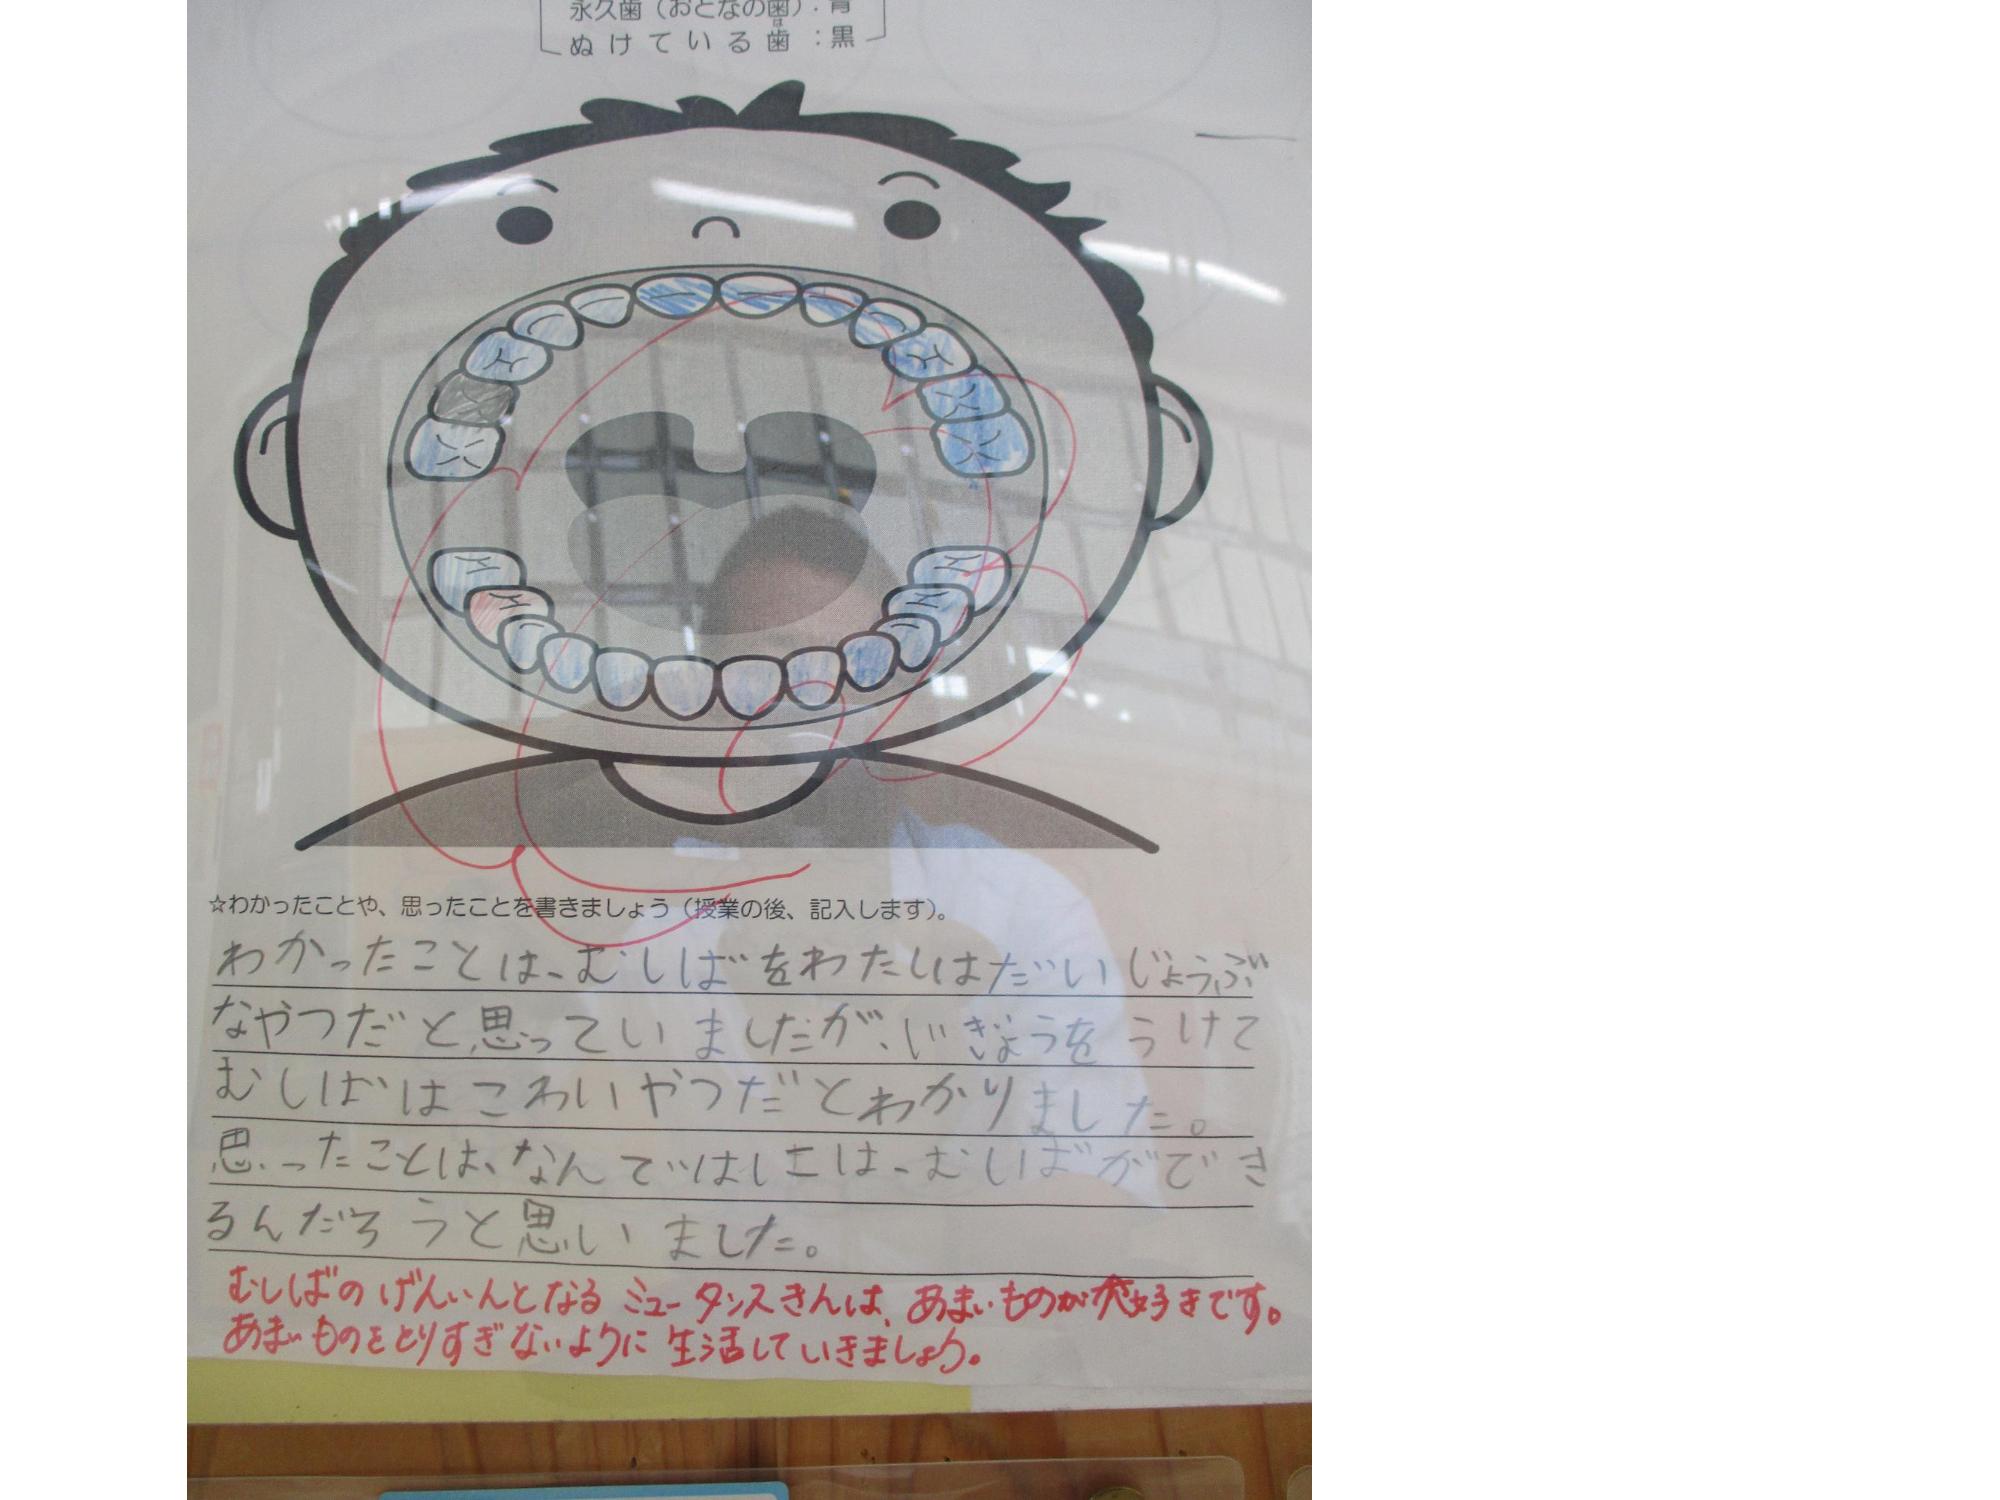 永久歯（おとなの歯）：青
ぬけている歯：黒
☆わかったことや、思ったことを書きましょう（授業の後、記入します）。
わかったことは、むしばをわたしはだいじょうぶ
なやつだと思っていましたが、じぎょうをうけて
むしばはこわいやつだとわかりました。
思ったことは、なんではじには、むしばができ
るんだろうと思いました。
むしばのげんいんとなるミュータンスきんは、あまいものが大好きです。
あまいものをとりすぎないように生活していきましょう。